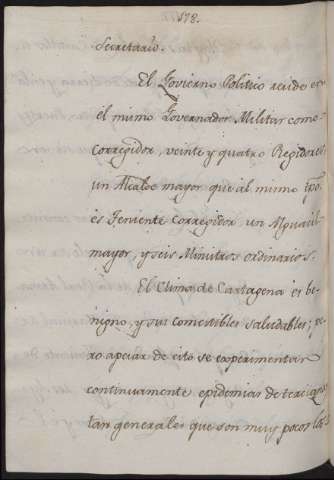 178.
Secretario.
El Govierno Politico reside en
el mismo Governador Militar como
Corregidor, veinte y quatro Regidores
un Alcalde mayor que al mismo tpo.
es Teniente Corregidor un Alguacil
mayor, y seis Ministros ordinarios.
El Clima de Cartagena es be-
nigno, y sus comestibles saludables; pe-
ro apesar de esto se experimentan
continuamente epidemias de tercianas
tan generales que son muy pocos los